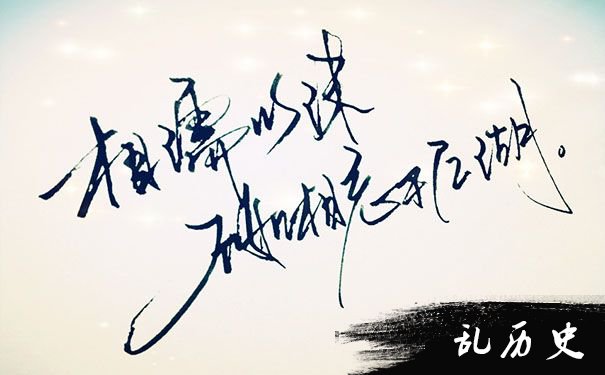 相濡以沫
不如相忘于江湖。
乱历史